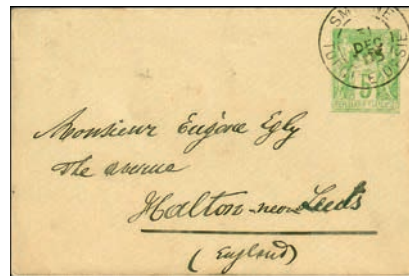 SM
DEC
5
Monsieur Eugène Egly
The avenue
Halton near Leeds
(England)